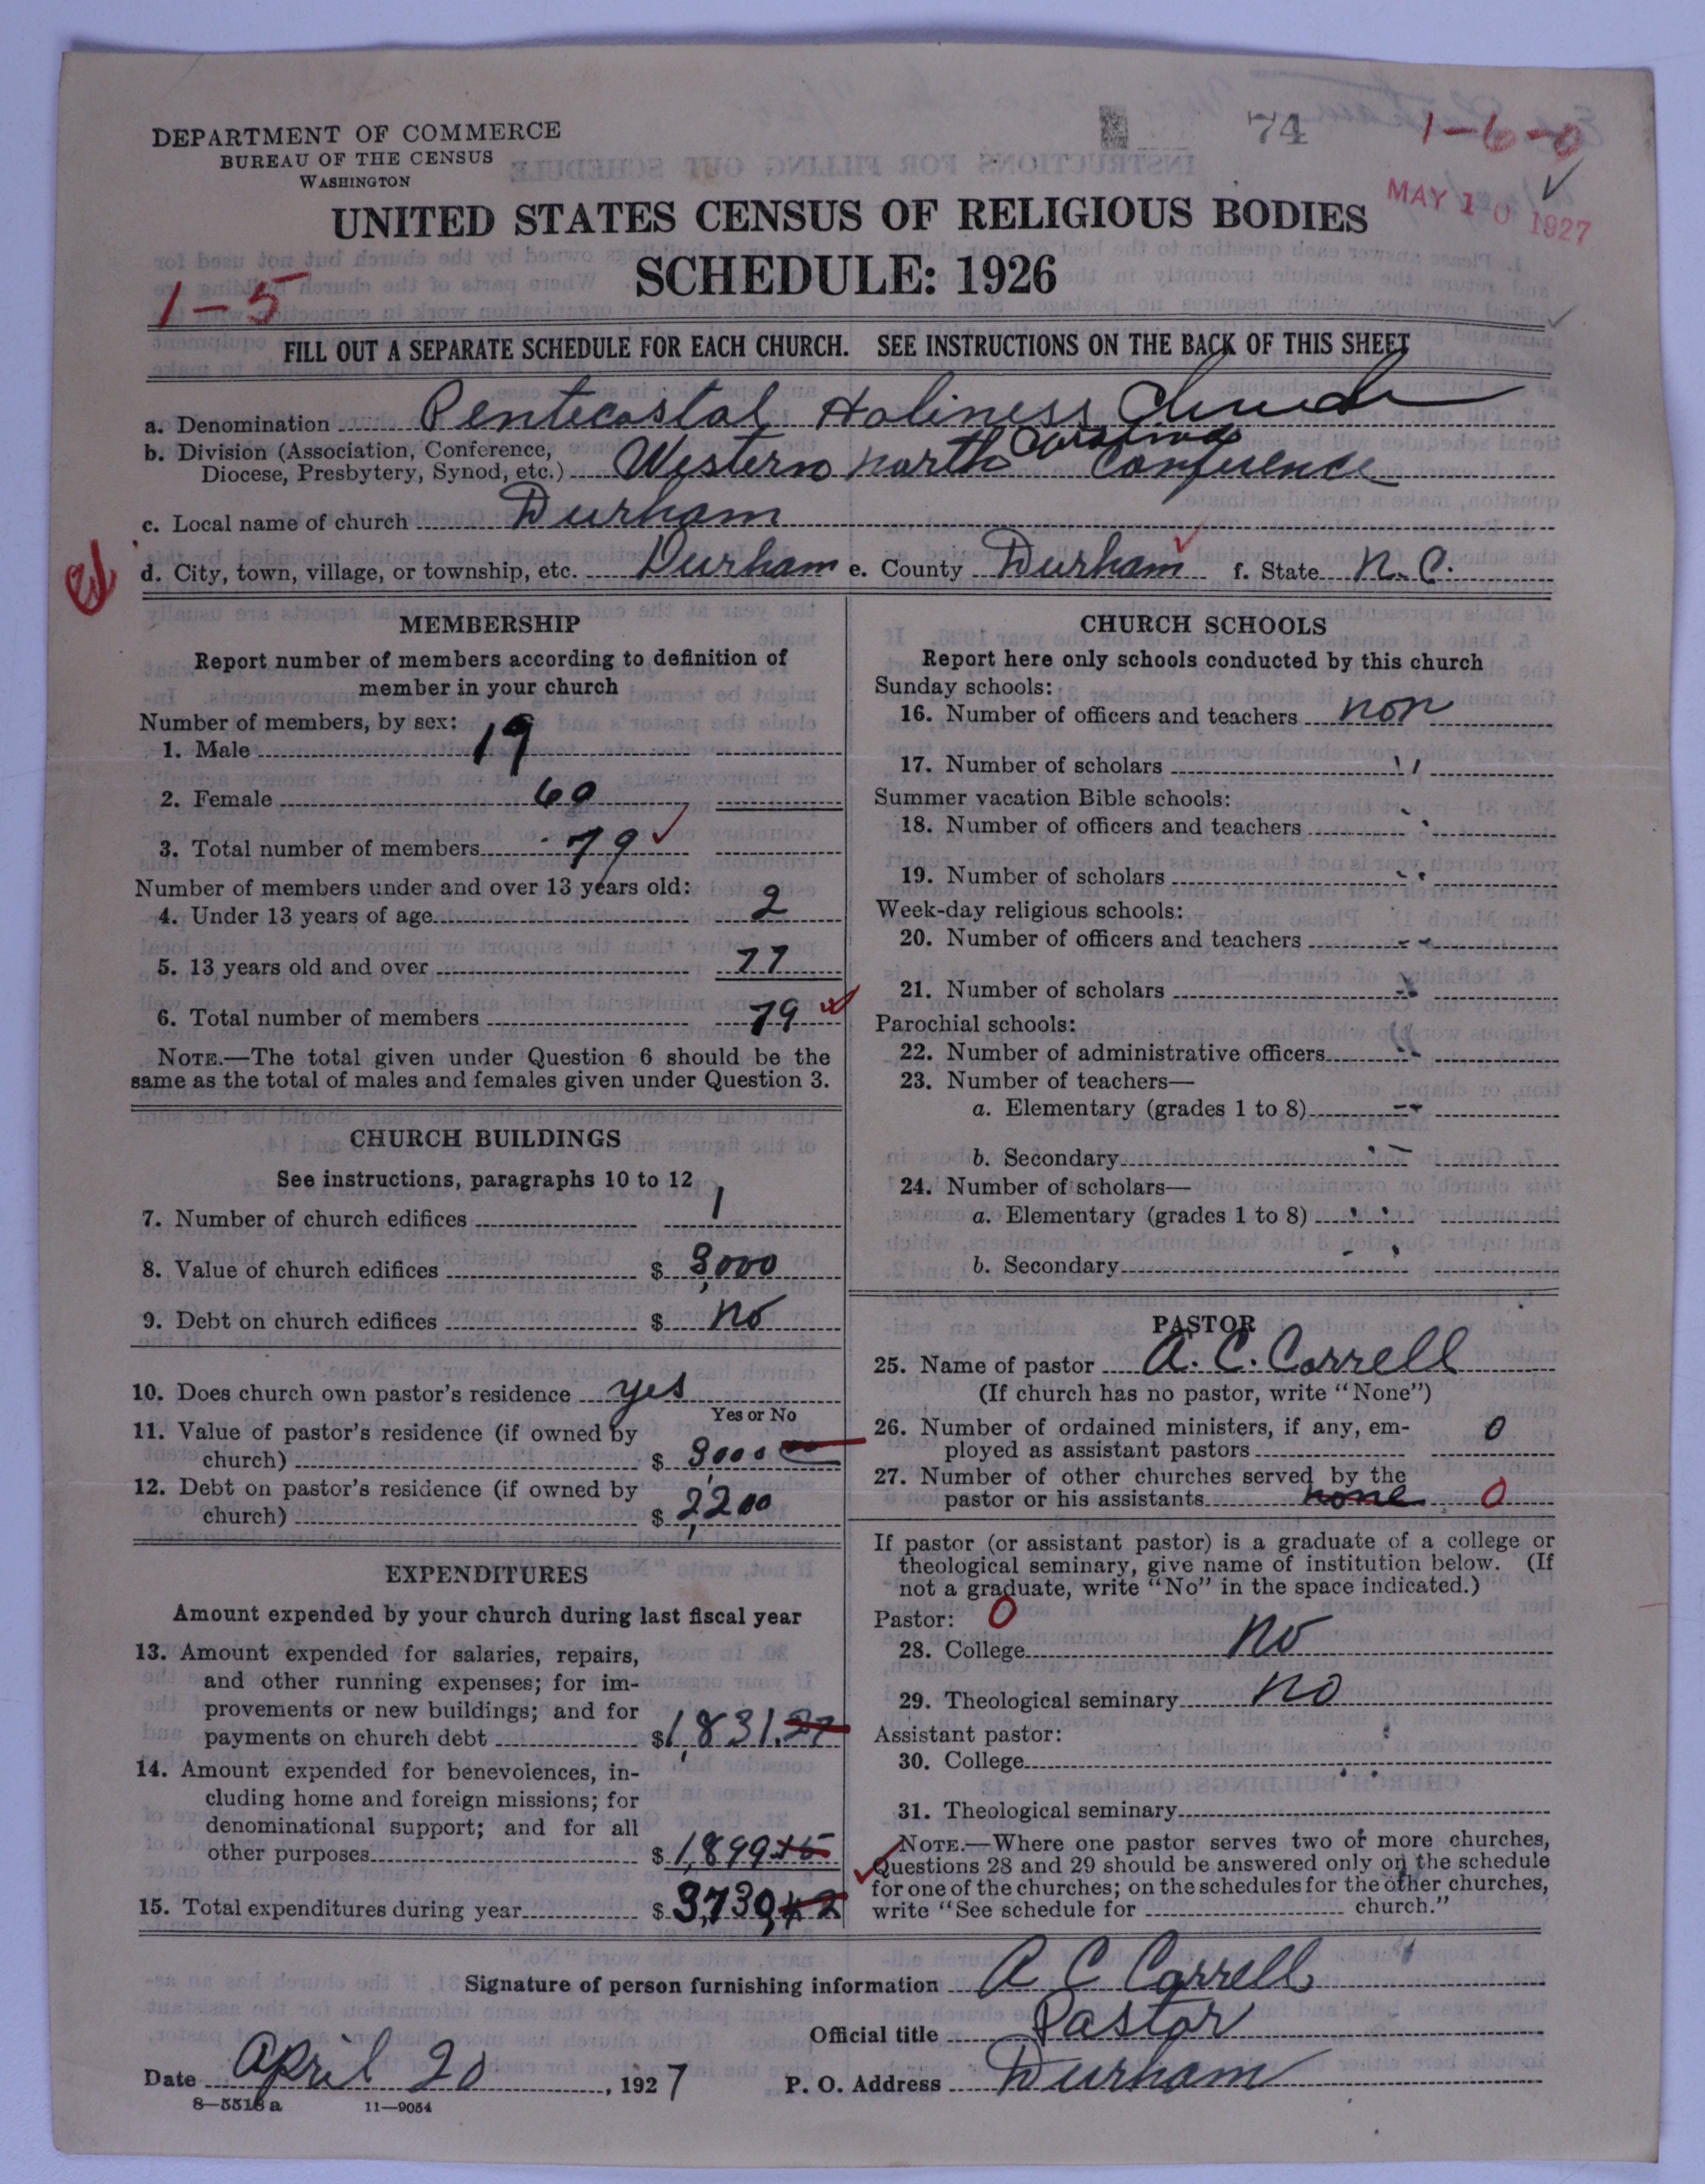 74
1-6-0
DEPARTMENT OF COMMERCE
BUREAU OF THE CENSUS
WASHINGTON
MAY 10 1927
UNITED STATES CENSUS OF RELIGIOUS BODIES
SCHEDULE: 1926
1-5
FILL OUT A SEPARATE SCHEDULE FOR EACH CHURCH. SEE INSTRUCTIONS ON THE BACK OF THIS SHEET
a. Denomination Pentecostal Holiness Church
b. Division (Association, Conference,
Diocese, Presbytery, Synod, etc.) Western North Carolina Conference
c. Local name of church Durham
d. City, town, village, or township, etc. Durham e. County Durham f. State N.C.
MEMBERSHIP
Report number of members according to definition of
member in your church
Number of members, by sex:
1. Male 19
2. Female 60
3. Total number of members 79
Number of members under and over 13 years old:
4. Under 13 years of age 2
5. 13 years old and over 77
6. Total number of members 79
NOTE.—The total given under Question 6 should be the
same as the total of males and females given under Question 3.
CHURCH BUILDINGS
See instructions, paragraphs 10 to 12
7. Number of church edifices 1
8. Value of church edifices $ 3,000
9. Debt on church edifices $ no
10. Does church own pastor's residence yes
Yes or No
11. Value of pastor's residence (if owned by
church) $ 3,000 00
12. Debt on pastor's residence (if owned by
church) $ 2,200
EXPENDITURES
Amount expended by your church during last fiscal year
13. Amount expended for salaries, repairs,
and other running expenses; for im-
provements or new buildings; and for
payments on church debt $1,831.27
14. Amount expended for benevolences, in-
cluding home and foreign missions; for
denominational support; and for all
other purposes $ 1,899 15
15. Total expenditures during year $ 3,730,42
CHURCH SCHOOLS
Report here only schools conducted by this church
Sunday schools:
16. Number of officers and teachers non
17. Number of scholars "
Summer vacation Bible schools:
18. Number of officers and teachers "
19. Number of scholars "
Week-day religious schools:
20. Number of officers and teachers "
21. Number of scholars "
Parochial schools:
22. Number of administrative officers "
23. Number of teachers—
a. Elementary (grades 1 to 8) "
b. Secondary "
24. Number of scholars—
a. Elementary (grades 1 to 8) "
b. Secondary "
PASTOR
25. Name of pastor A. C. Correll
(If church has no pastor, write "None")
26. Number of ordained ministers, if any, em-
ployed as assistant pastors 0
27. Number of other churches served by the
pastor or his assistants none 0
If pastor (or assistant pastor) is a graduate of a college or
theological seminary, give name of institution below. (If
not a graduate, write "No" in the space indicated.)
Pastor: 0
28. College No
29. Theological seminary no
Assistant pastor:
30. College
31. Theological seminary
NOTE.—Where one pastor serves two or more churches,
Questions 28 and 29 should be answered only on the schedule
for one of the churches; on the schedules for the other churches,
write "See schedule for church."
Signature of person furnishing information A C Correll
Official title Pastor
Date April 20, 1927 P. O. Address Durham
8—5518 a 11—9054